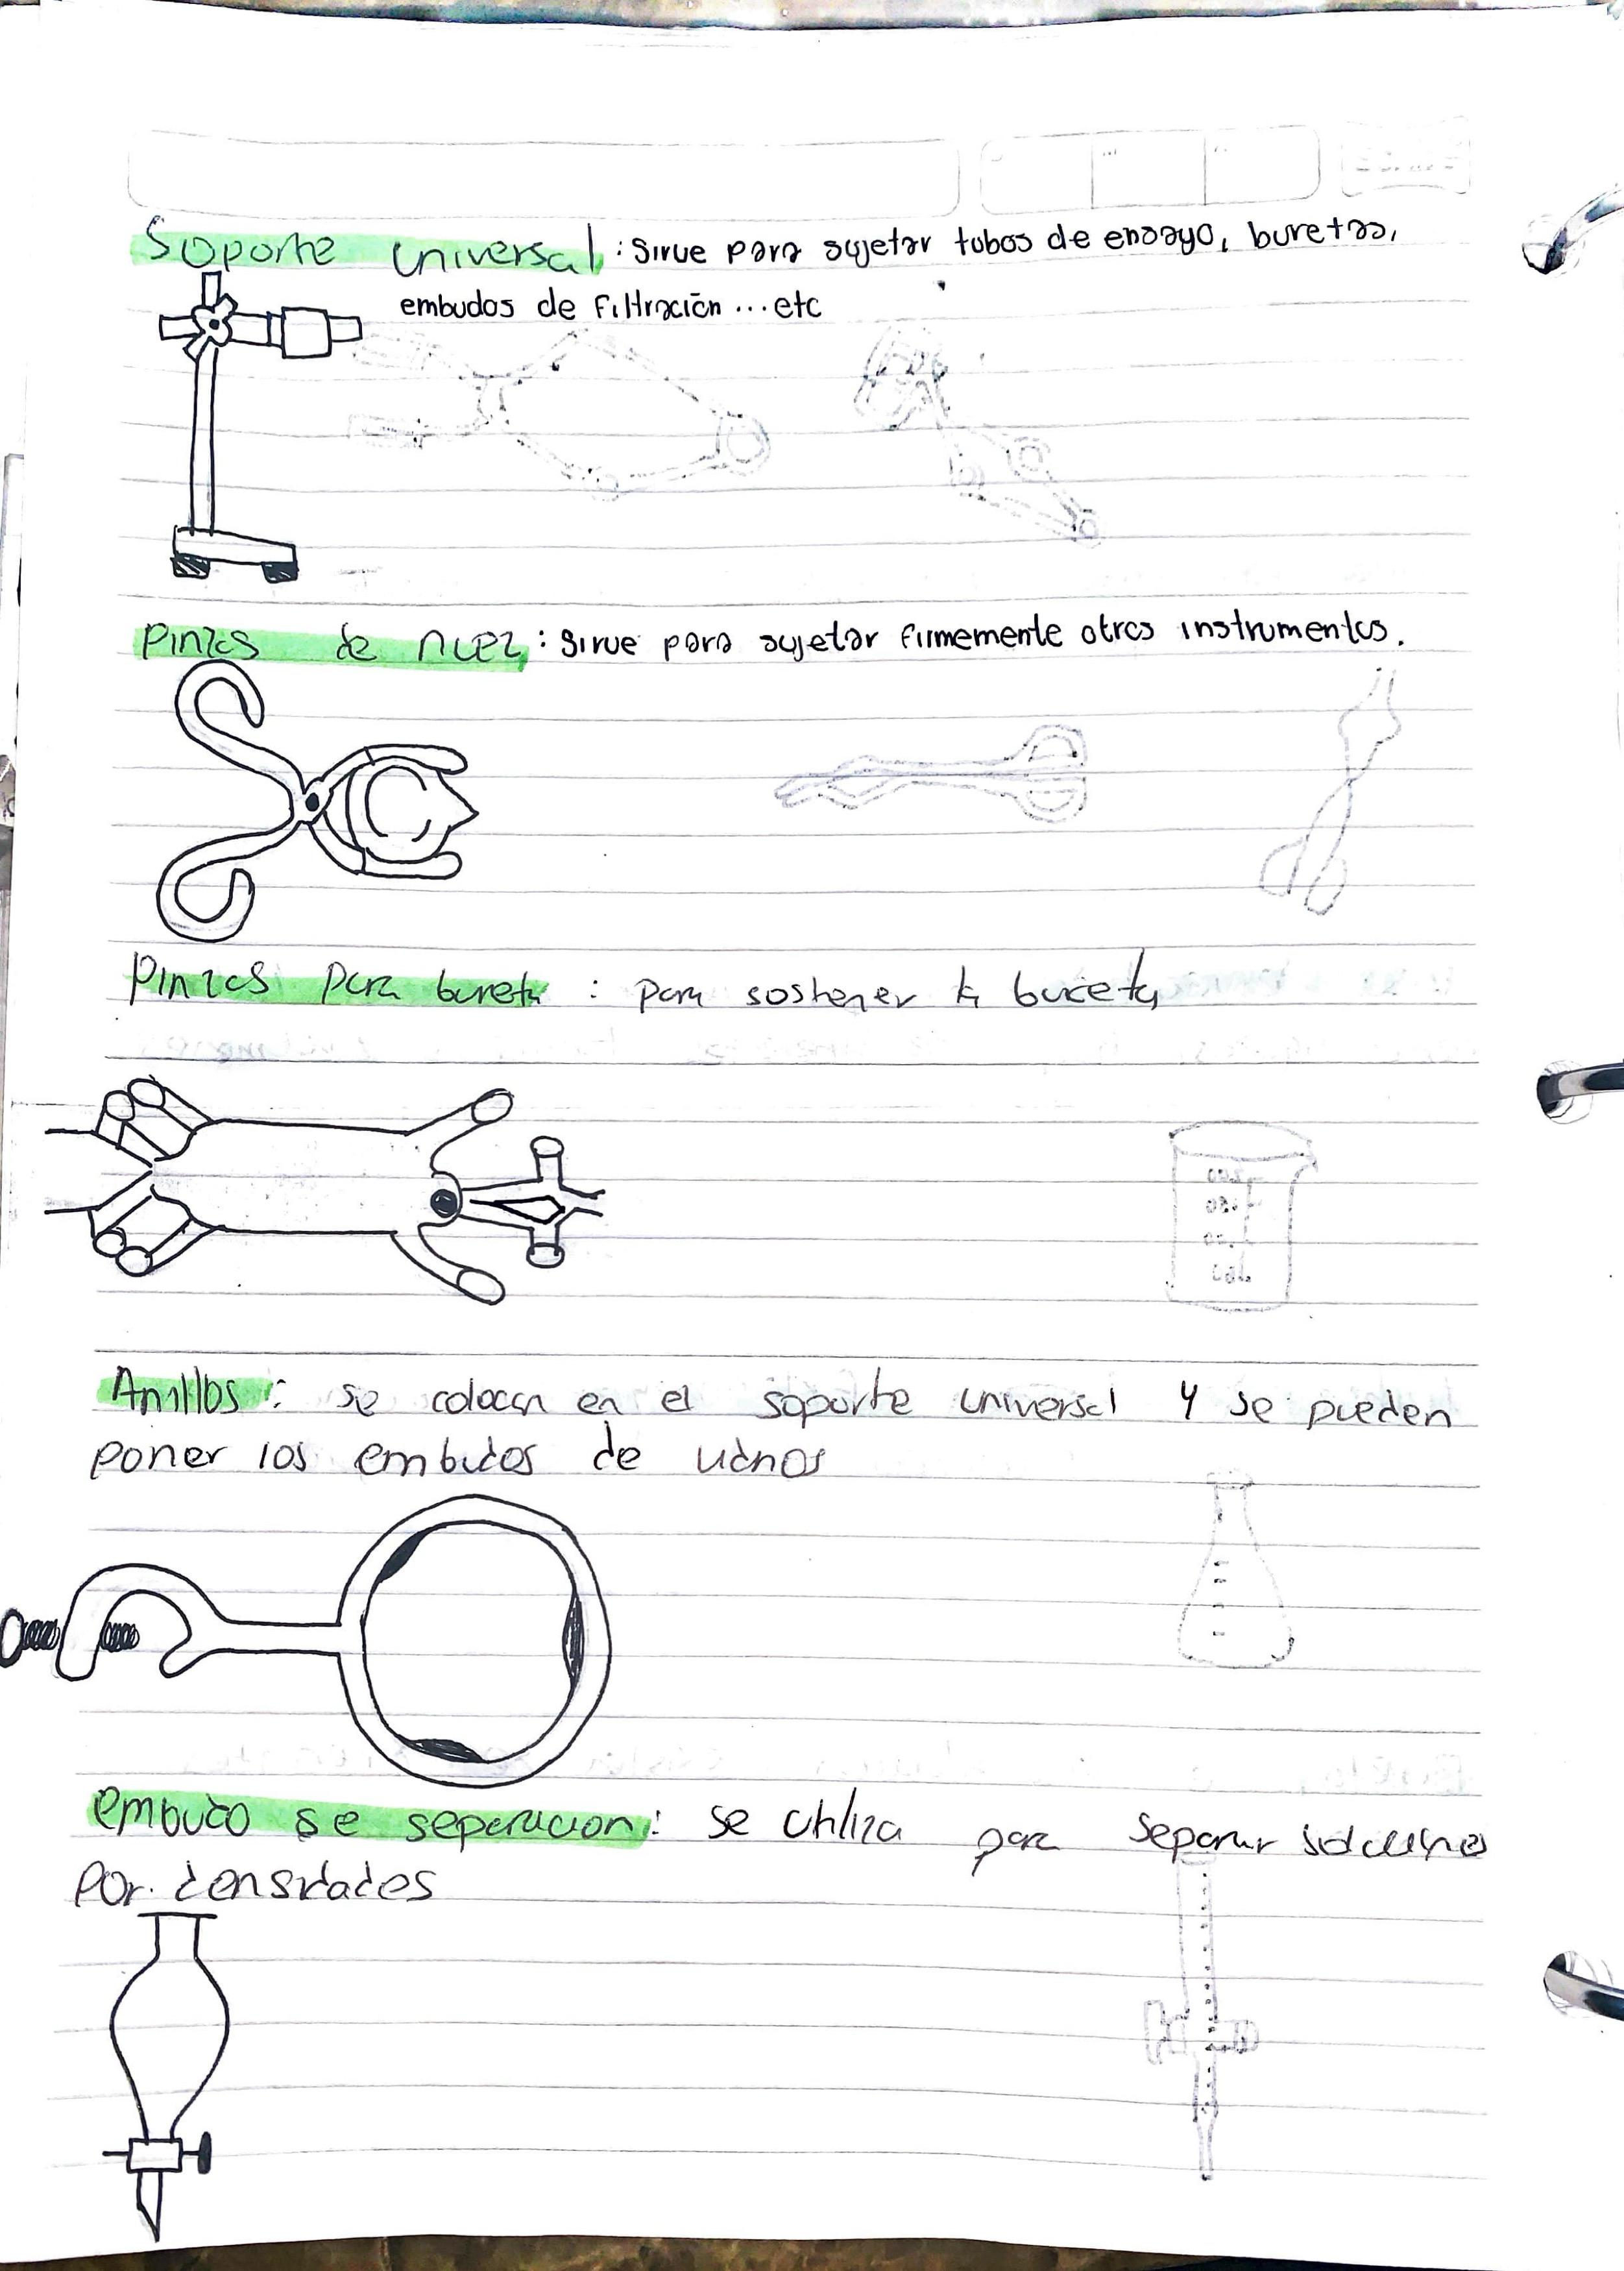 Soporte universal : Sirve para sujetar tubos de ensayo, buretas,
embudos de filtración ...etc
Pinzas de nuez : Sirve para sujetar firmemente otros instrumentos.
Pinzas para bureta : para sostener la bureta
Anillos : se colocan en el soporte universal y se pueden
poner los embudos de
Embudo se separacion : se utiliza para separar soluciones
Por densidades